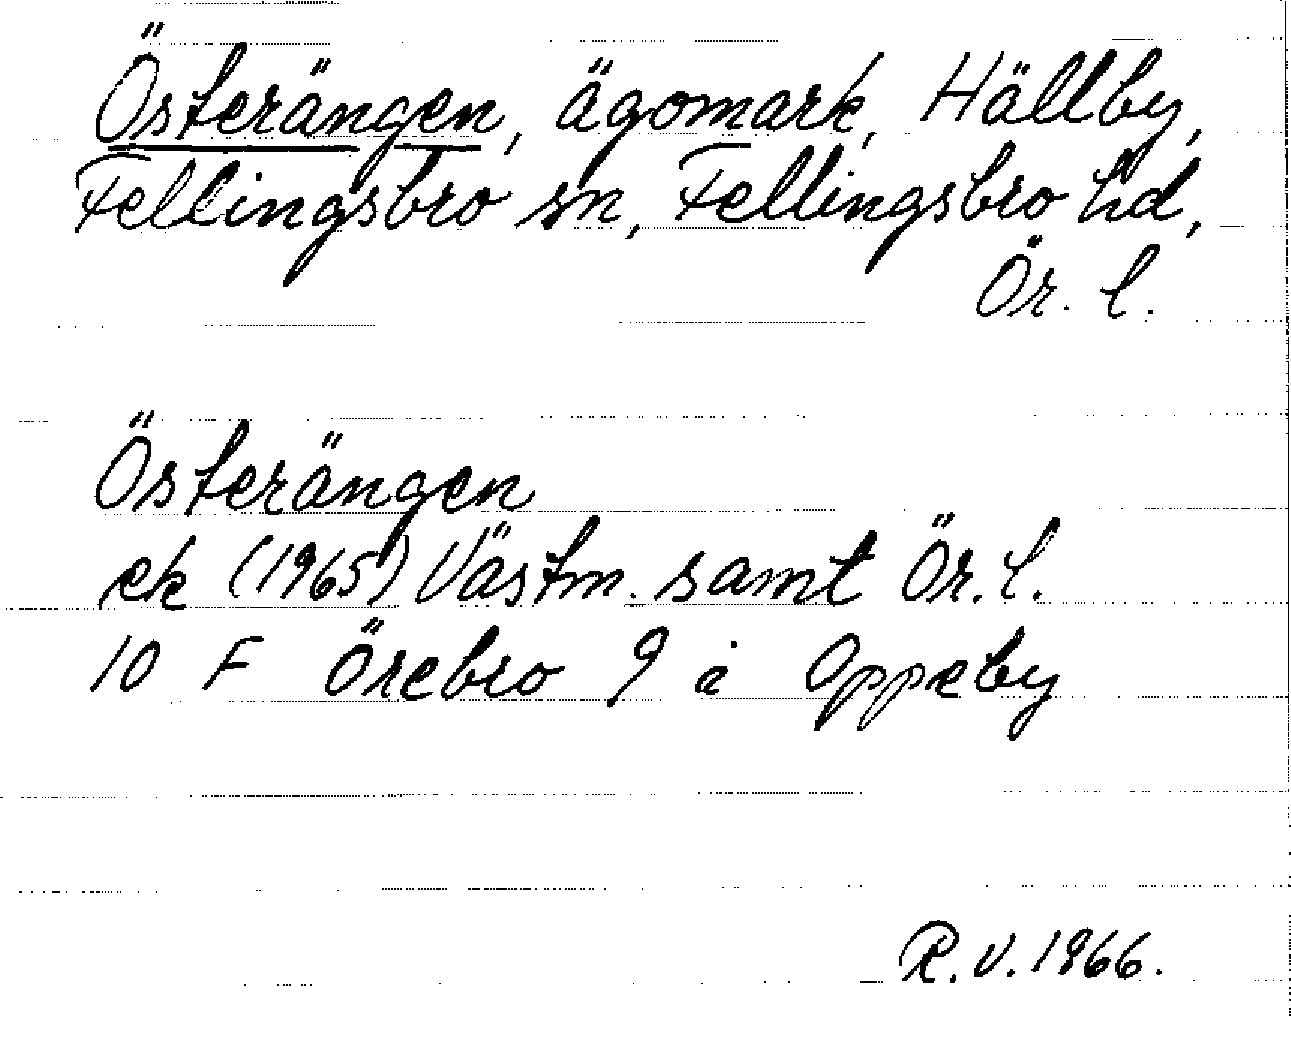 Österängen, ägomark, Hällby,
Fellingsbro sn, Fellingsbro hd,
Ör. l.
Österängen
ek (1965) Västm. samt Ör. l.
10 F Örebro 9 i Oppeby
R.V. 1966.